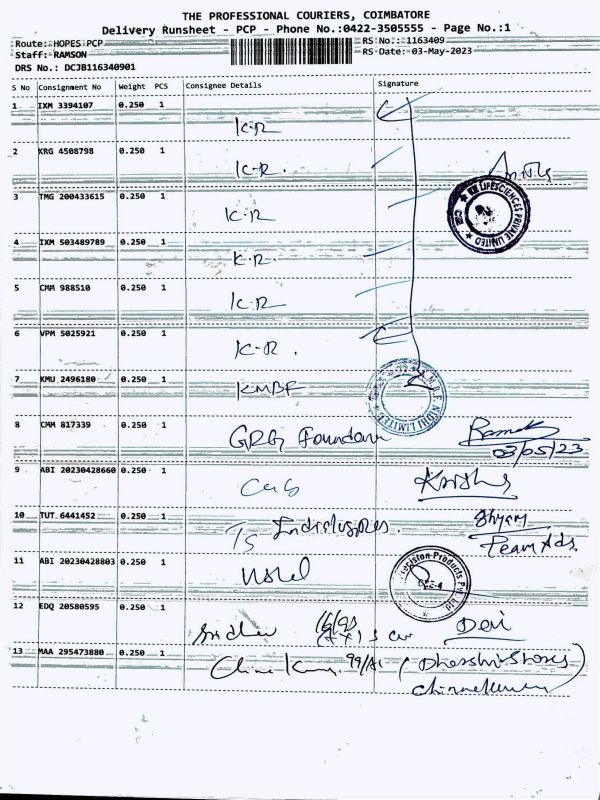 THE PROFESSIONAL COURIERS, COIMBATORE
Delivery Runsheet - PCP - Phone No.:0422-3505555 - Page No.:1
Route: HOPES PCP RS No.: 1163409
Staff: RAMSON RS Date: 03-May-2023
DRS No.: DCJB116340901
S No Consignment No Weight PCS Consignee Details Signature
1 IXM 3394107 0.250 1 K-R
2 KRG 4508798 0.250 1 K-R.
3 TMG 200433615 0.250 1 K-R
LIFESCIENCES PRIVATE LIMITED
4 IXM 503489789 0.250 1 K-R.
5 CMM 988510 0.250 1 K-R
6 VPM 5025921 0.250 1 K-R.
7 KMU 2496180 0.250 1 KMBF
K.M.B.F. NIDHI LIMITED
8 CMM 817339 0.250 1 GRG Foundation
03/05/23
9 ABI 20230428660 0.250 1
10 TUT 6441452 0.250 1 Shyam
Team Ads.
11 ABI 20230428803 0.250 1
Precision Products Pvt. Ltd.
12 EDQ 20580595 0.250 1 Devi
13 MAA 295473880 0.250 1 99/A1